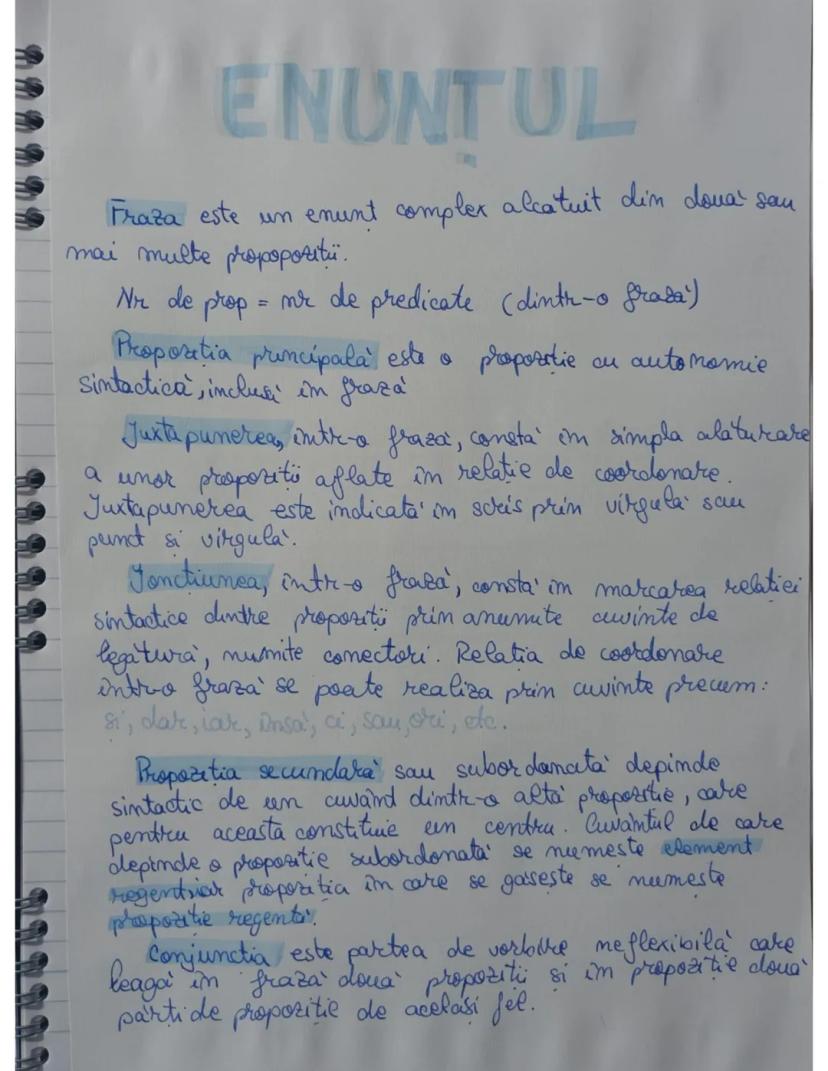 ENUNȚUL
Fraza este un enunt complex alcatuit din două sau
mai multe propopoziții.
Nr de prop = nr de predicate (dintr-o frază)
Propozitia principală este o propozitie cu autonomie
sintactică, inclusă în frază
Juxtapunerea, într-o frază, constă în simpla alăturare
a unor propoziții aflate în relație de coordonare.
Juxtapunerea este indicată în scris prin virgulă sau
punct si virgulă.
Joncțiunea, într-o frază, constă în marcarea relatiei
sintactice dintre propoziții prin anumite cuvinte de
legătură, numite conectori. Relația de coordonare
într-o frază se poate realiza prin cuvinte precum:
și, dar, iar, însă, ci, sau, ori, etc.
Propoziția secundară sau subordonată depinde
sintactic de un cuvând dintr-o altă propozitie, care
pentru aceasta constituie un centru. Cuvântul de care
depinde o propozitie subordonată se numeste element
regent iar propoziția în care se gasește se numește
propozitie regentă.
Conjunctia este partea de vorbire neflexibilă care
leagă în frază două propoziții și în propoziție două
părți de propoziție de același fel.